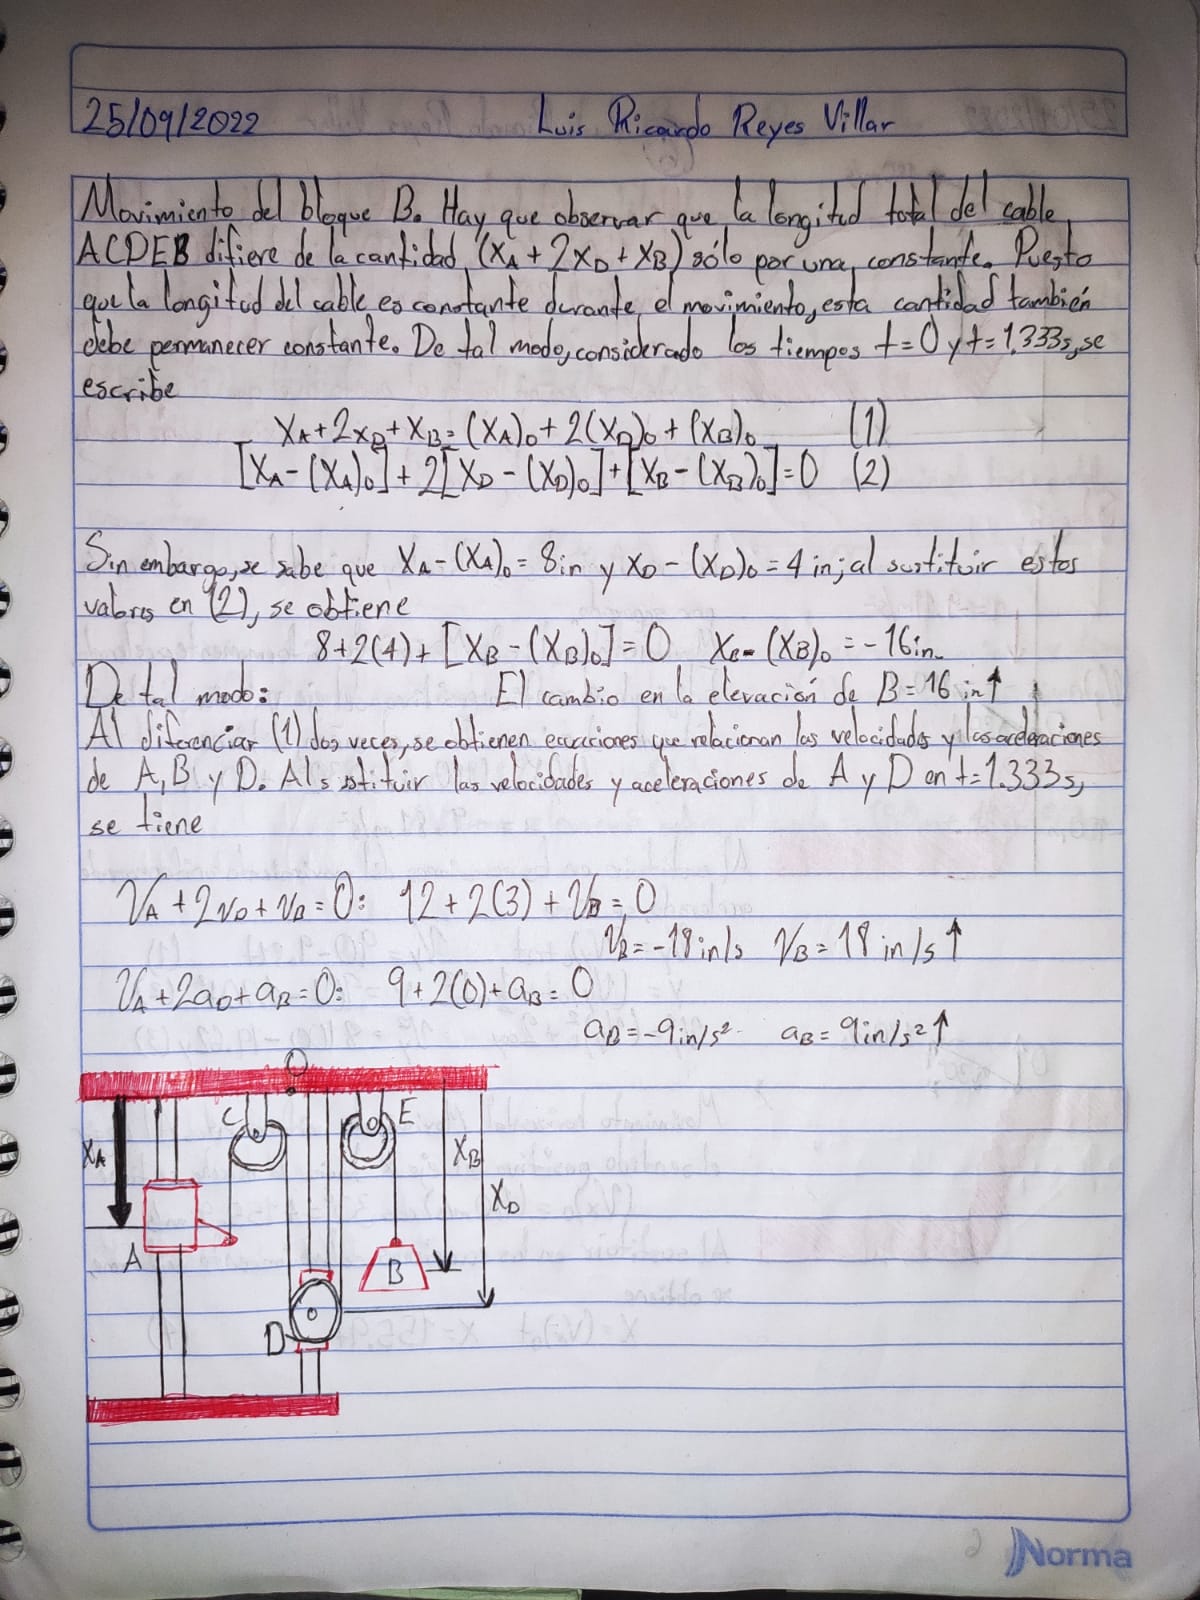 25/09/2022 Luis Ricardo Reyes Villar
Movimiento del bloque B. Hay que observar que la longitud total del cable
ACDEB difiere de la cantidad (XA + 2XD + XB) sólo por una constante. Puesto
que la longitud del cable es constante durante el movimiento, esta cantidad también
debe permanecer constante. De tal modo, considerado los tiempos t=0 y t=1.333s, se
escribe
XA+2xD+XB=(XA)0+2(XD)0+(XB)0 (1)
[XA-(XA)0]+2[XD-(XD)0]+[XB-(XB)0]=0 (2)
Sin embargo, se sabe que XA-(XA)0=8in y XD-(XD)0=4 in; al sustituir estos
valores en (2), se obtiene
8+2(4)+[XB-(XB)0]=0 XB-(XB)0=-16in
De tal modo: El cambio en la elevación de B=16 in↑
Al diferenciar (1) dos veces, se obtienen ecuaciones que relacionan las velocidades y las aceleraciones
de A, B y D. Al sustituir las velocidades y aceleraciones de A y D en t=1.333s,
se tiene
VA+2vD+vB=0: 12+2(3)+VB=0
VB=-18in/s VB=18in/s↑
VA+2aD+aB=0: 9+2(0)+aB=0
aB=-9in/s² aB=9in/s²↑
O
C E
XA XB
XD
A B
D
Norma